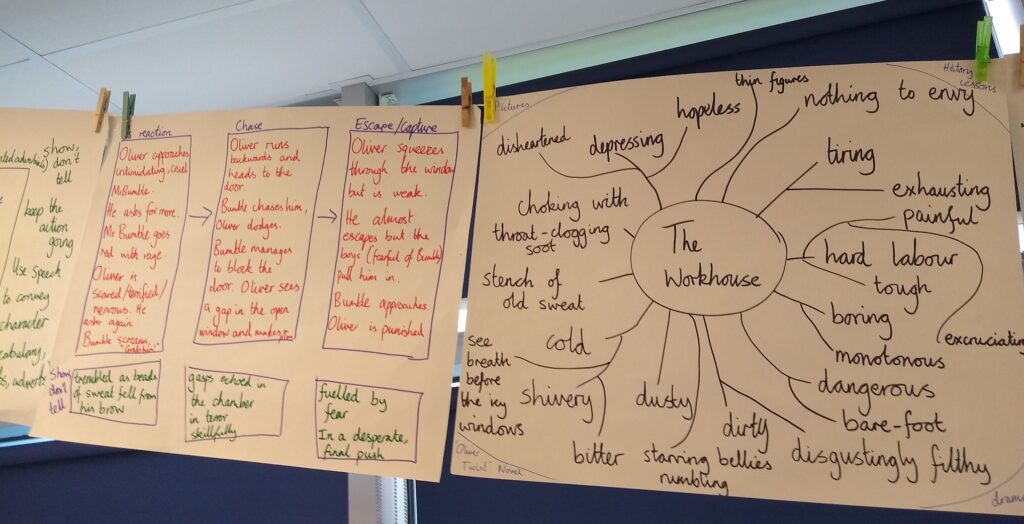 show,
don't
tell
keep the
action
going
Use speech
to convey
character
reaction
Oliver approaches
intimidating, cruel
Mr Bumble.
He asks for more.
Mr Bumble goes
red with rage.
Oliver is
scared/terrified/
nervous. He
asks again
Bumble screams,
Chase
Oliver runs
backwards and
heads to the
door.
Bumble chases him,
Oliver dodges.
Bumble manages
to block the
door. Oliver sees
a gap in the open
window and makes
Escape/Capture
Oliver squeezes
through the window
but is weak.
He almost
escapes but the
boys (fearful of Bumble)
pull him in.
Bumble approaches.
Oliver is punished
show
don't
tell
trembled as beads
of sweat fell from
his brow
gasps echoed in
the chamber
in terror
skillfully
fuelled by
fear
In a desperate,
final push
Pictures
History
Lessons
The
Workhouse
thin figures
nothing to envy
hopeless
depressing
disheartened
tiring
exhausting
painful
hard labour
tough
excruciating
boring
monotonous
dangerous
bare-foot
dirty
disgustingly filthy
dusty
starving bellies
rumbling
cold
shivery
bitter
see
breath
before
the icy
windows
stench of
old sweat
choking with
throat-clogging
soot
Oliver
Twist Novel
drama